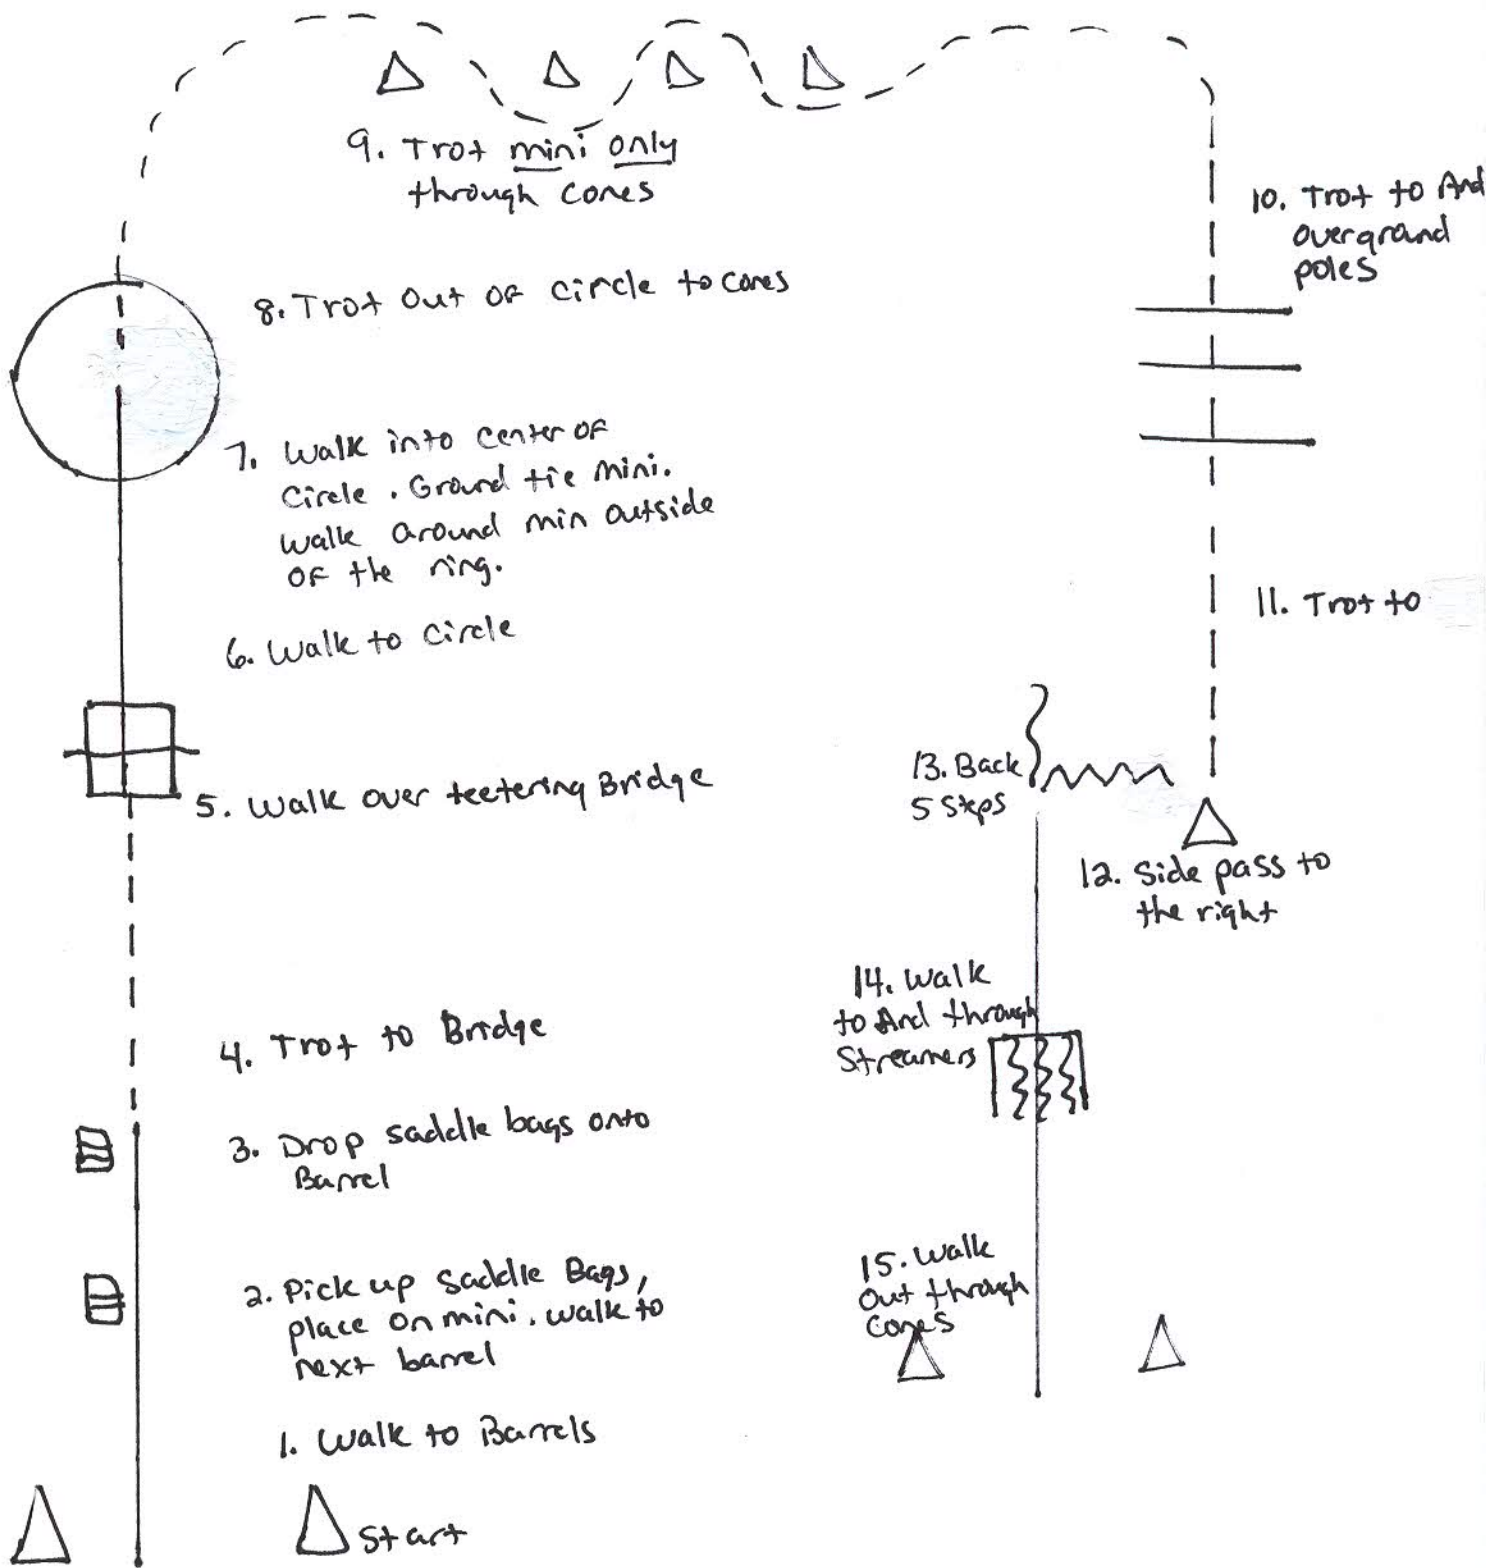 9. Trot mini only
through cones
10. Trot to And
over ground
poles
8. Trot Out OF Circle to Cones
7. Walk into Center OF
Circle. Ground tie mini.
Walk around min outside
OF the ring.
11. Trot to
6. Walk to Circle
13. Back
5 Steps
5. Walk over teetering Bridge
12. Side pass to
the right
14. Walk
to And through
Streamers
4. Trot to Bridge
3. Drop saddle bags onto
Barrel
15. Walk
Out through
Cones
2. Pick up Saddle Bags,
place on mini. Walk to
next barrel
1. Walk to Barrels
Start